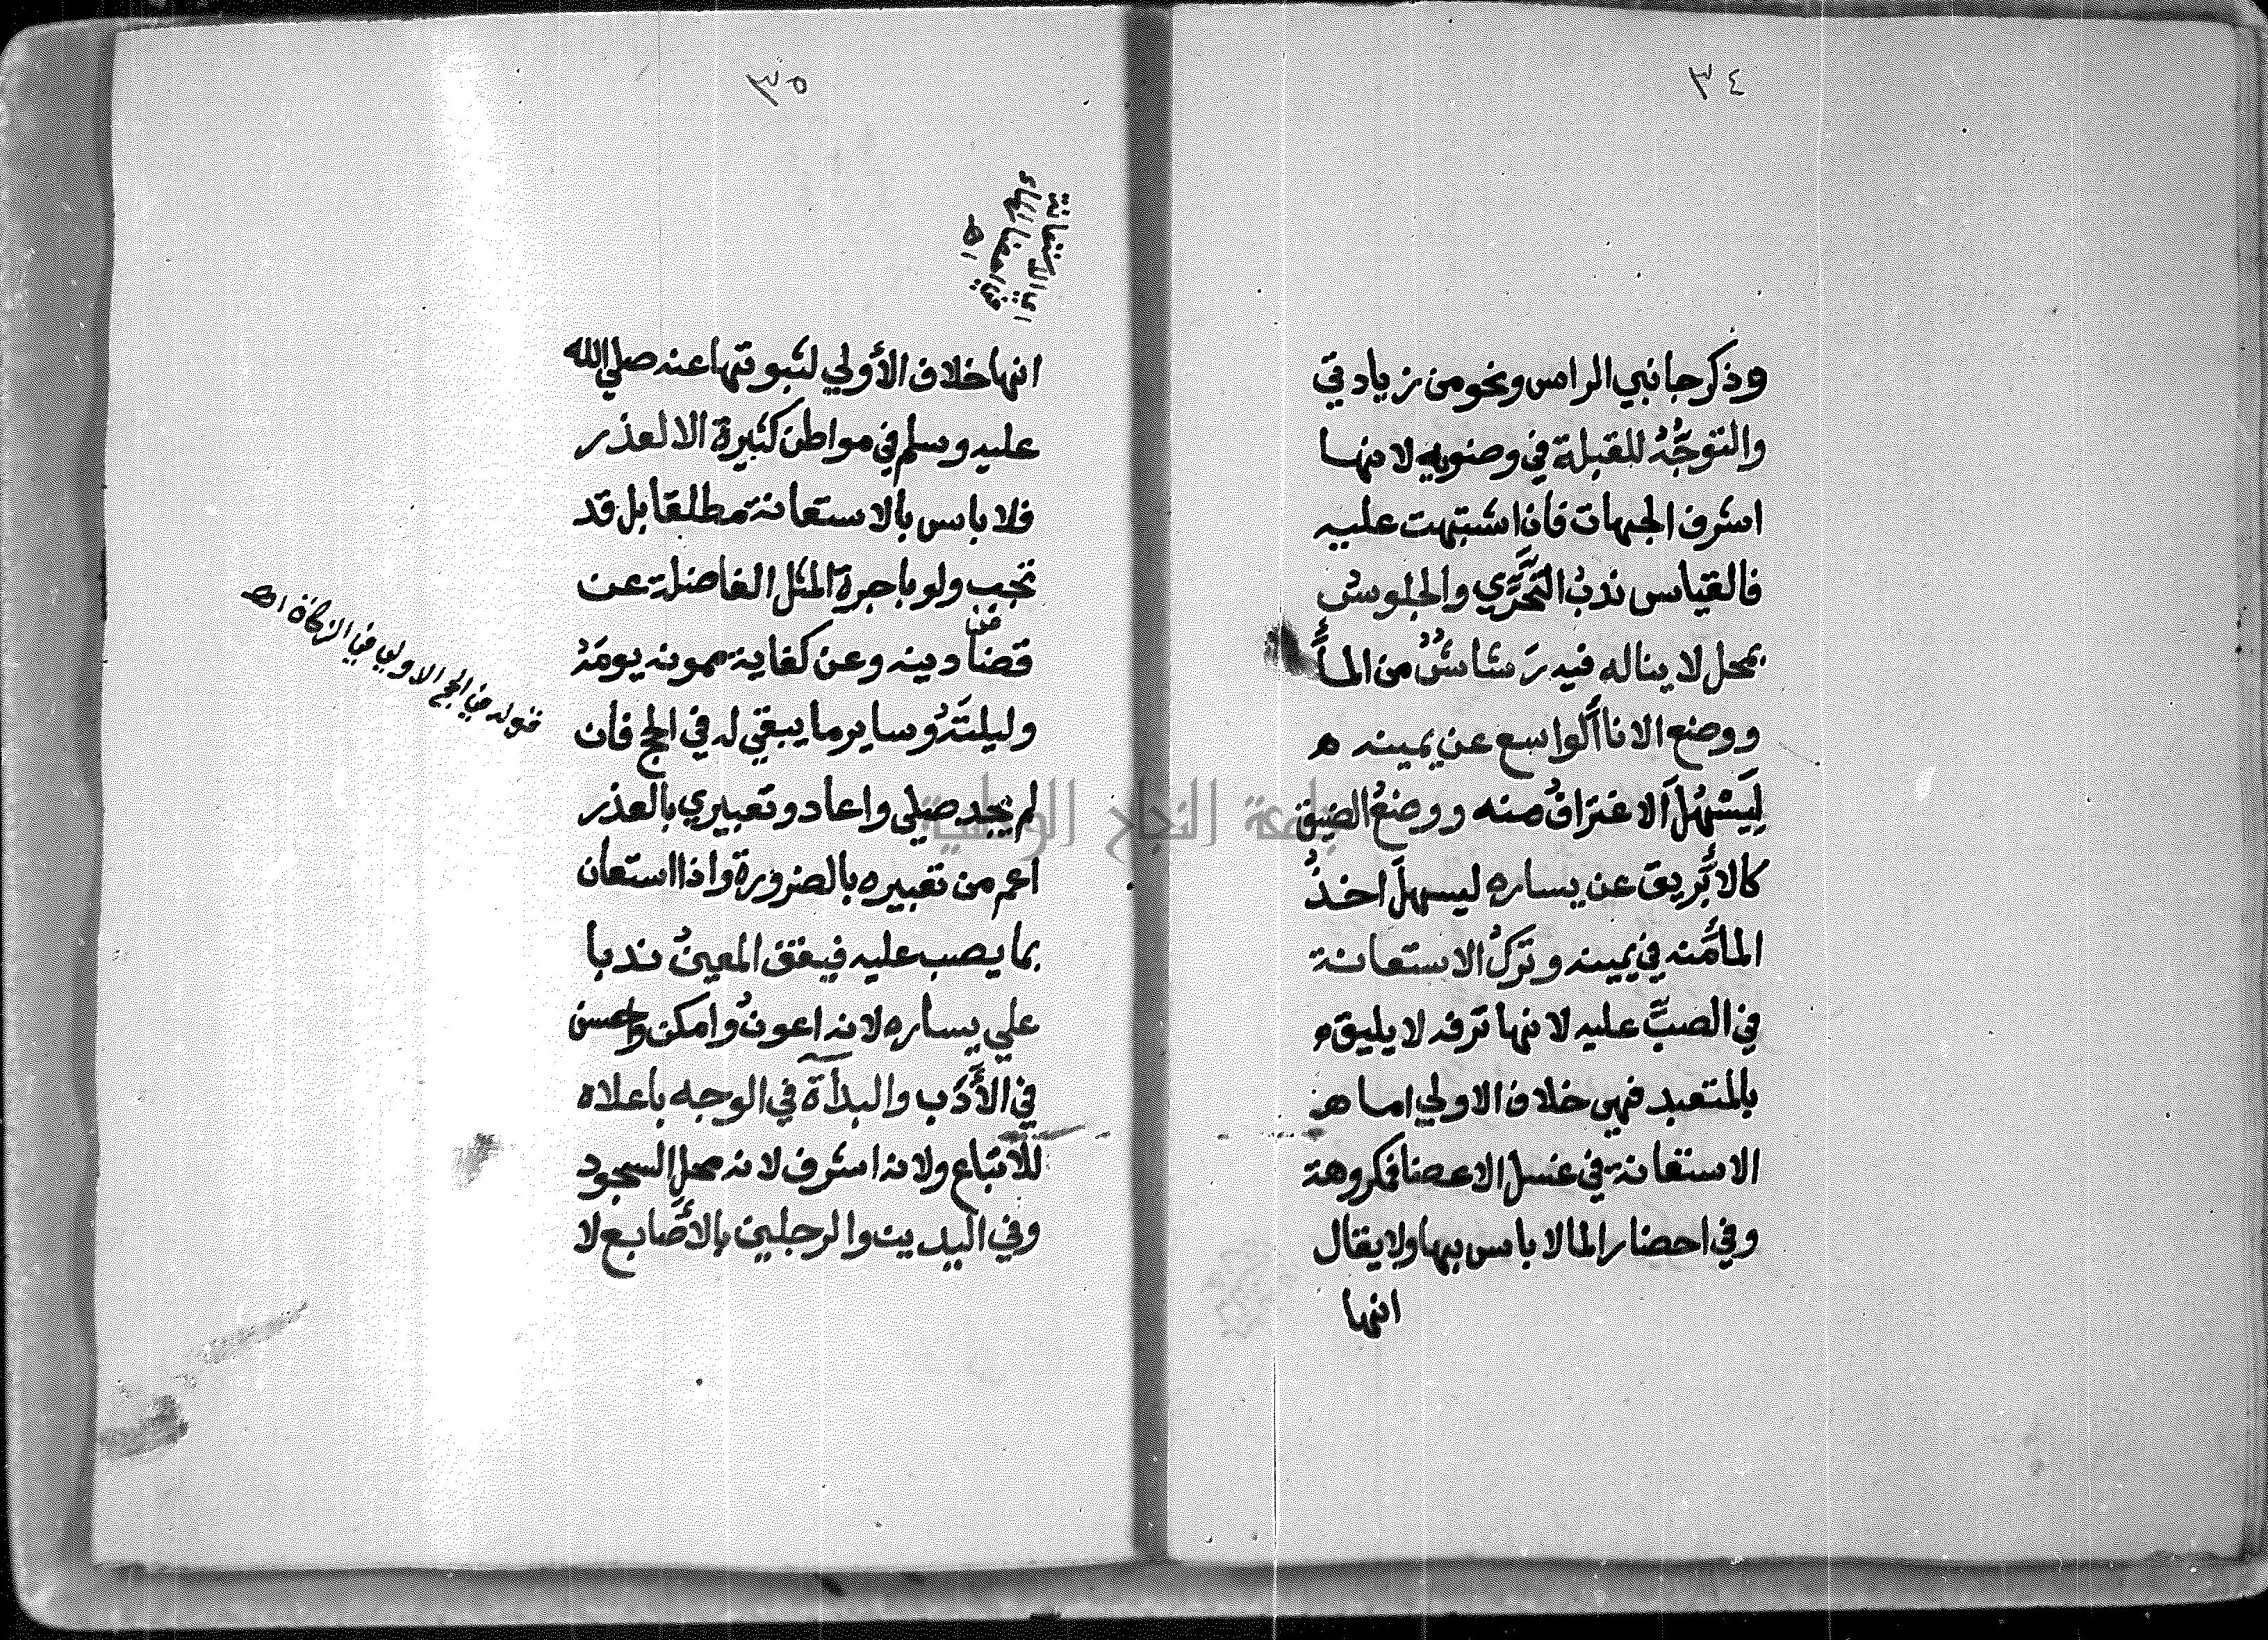 ٣٤
وذكر جانبي الراس ونحو من زيادتي
والتوجُّهُ للقبلة في وضويه لانها
اشرف الجهات فان اشتبهت عليه
فالقياس ندبُ التَّحَرِّي والجلوسُ
بمحل لا يناله فيه رَشاشٌ من المأ
ووضع الانأ الواسع عن يمينه ه
لِيَسْهُلَ الاغترافُ منه ووضعُ الضيق
كالابْريق عن يساره ليسهلَ اخذُ
المأ منه في يمينه وتركُ الاستعانة
في الصبِّ عليه لانها ترفه لا يليق
بالمتعبد فهي خلاف الاولي اما هـ
الاستعانة في غسل الاعضا فمكروهة
وفي احضار الما لا باس بها ولا يقال
انها
٣٥
اي الاستعانة
في احضا الماء
اهـ
انها خلاف الأولي لثبوتها عنه صلي الله
عليه وسلم في مواطن كثيرة الا لعذر
فلا باس بالاستعانة مطلقا بل قد
تجب ولو باجرة المثل الفاضلة عن
قضأ دينه وعن كفاية ممونه يومَهُ
وليلتَهُ وساير ما يبقي له في الحج فان
لم يجد صلي واعاد وتعبيري بالعذر
اعم من تعبيره بالضرورة واذا استعان
بما يصب عليه فيقف المعينُ ندبا
علي يساره لانه اعونُ وامكن واحسن
في الأَدَب والبدأة في الوجه باعلاه
للاتباع ولانه اشرف لانه محل السجود
وفي اليدين والرجلين بالأصابع لا
قوله في الحج الاولي في الزكاة اهـ
جامعة النجاح الوطنية